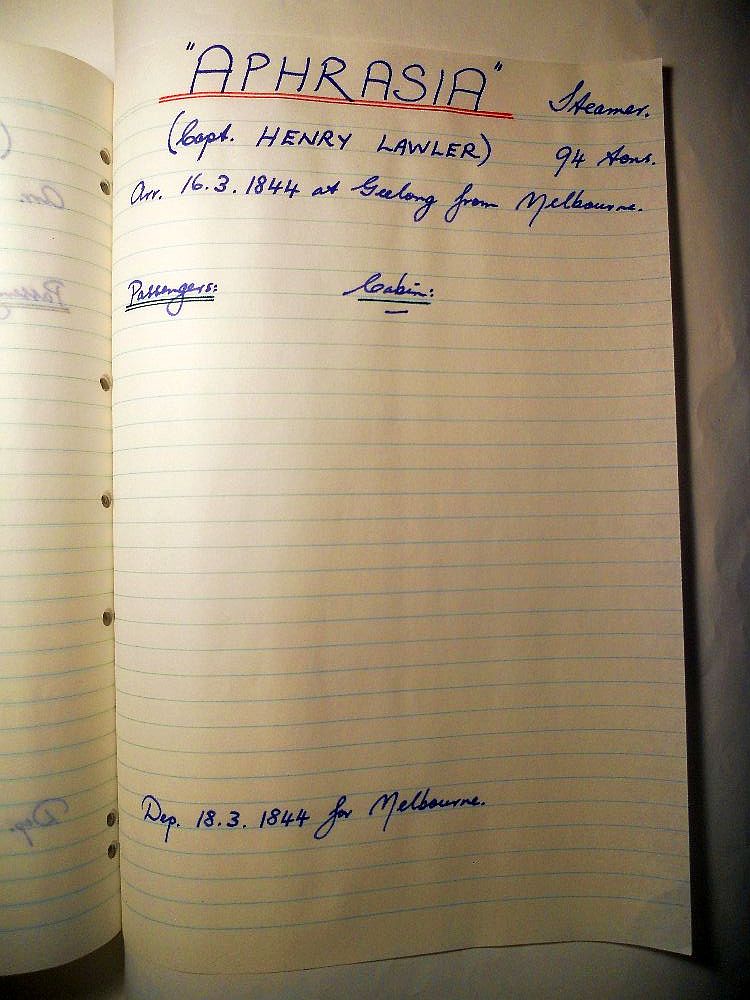 "APHRASIA" Steamer.
(Capt. HENRY LAWLER) 94 tons.
Arr. 16.3.1844 at Geelong from Melbourne.
Passengers: Cabin:
Dep. 18.3.1844 for Melbourne.